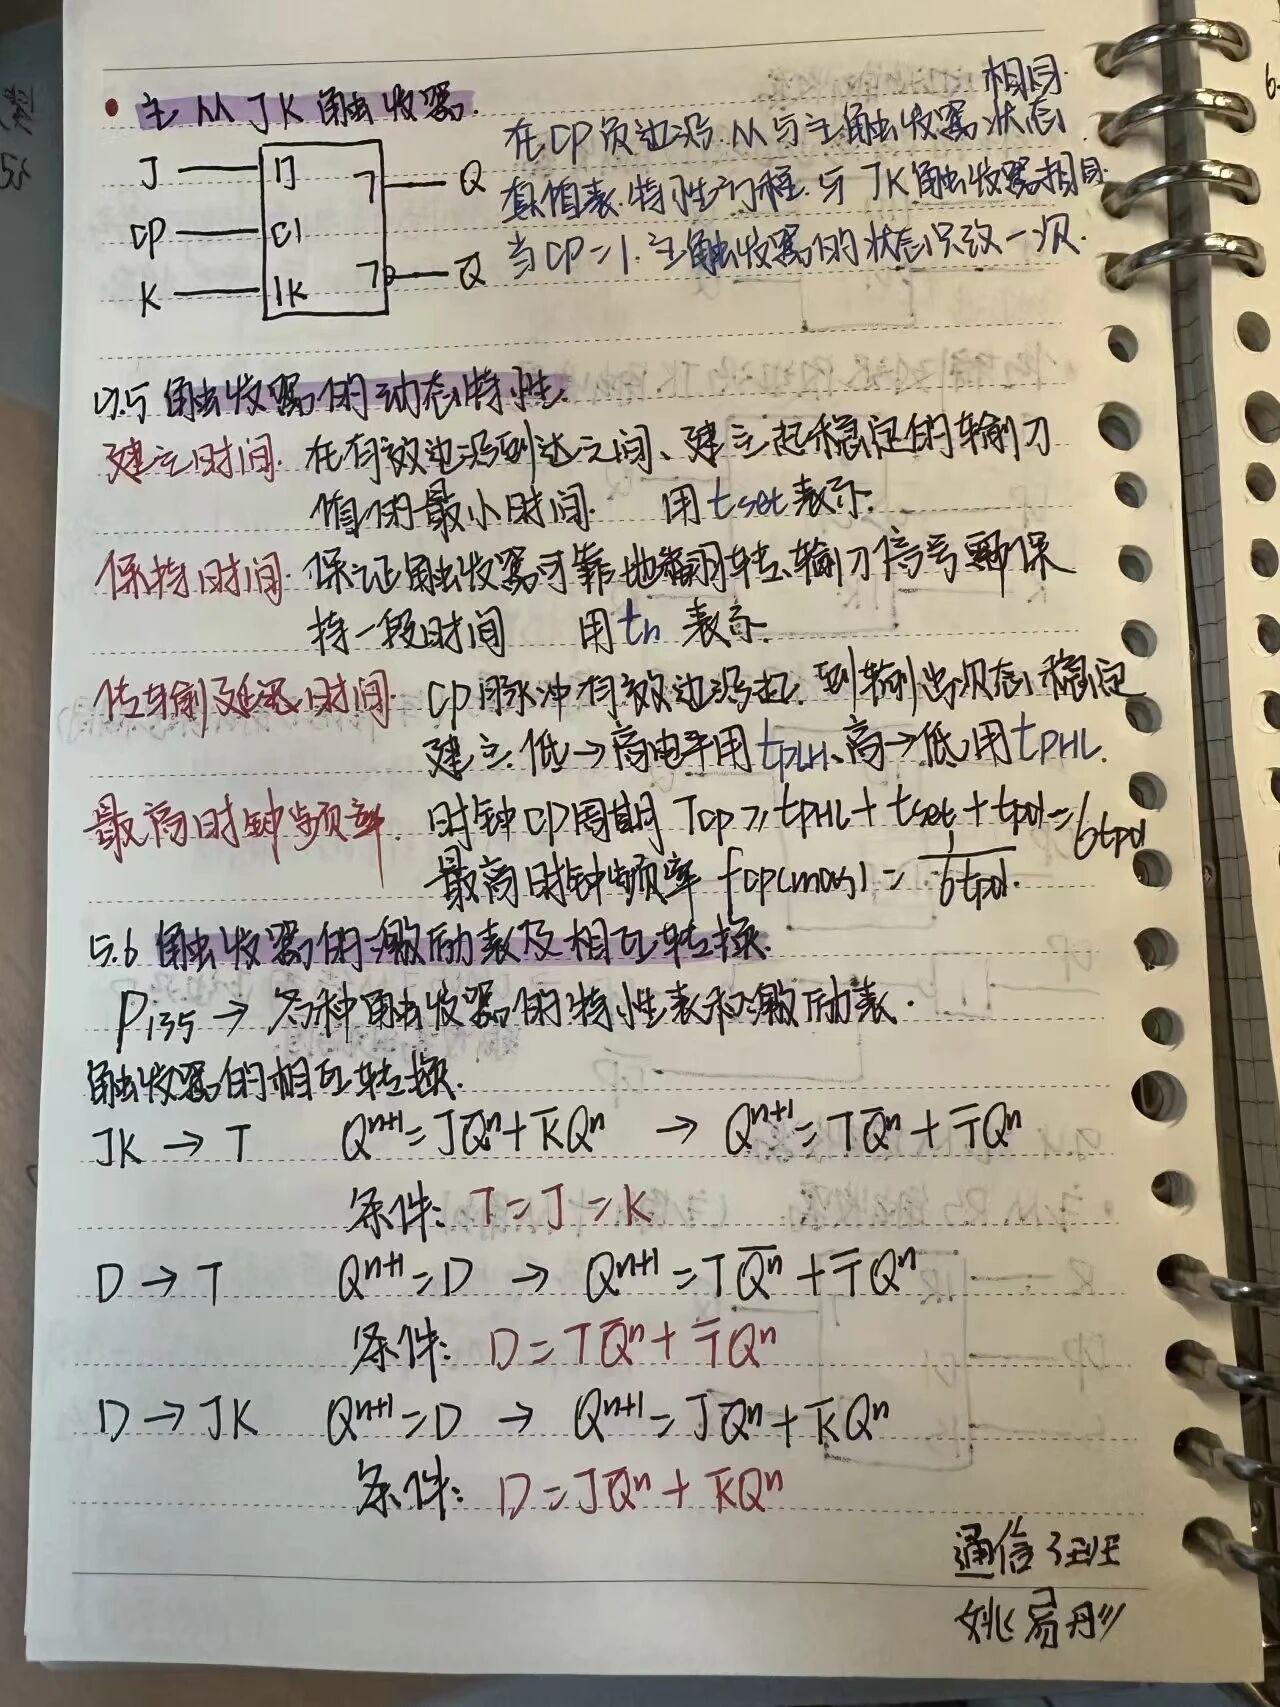 主从JK触发器.
J 1J ㄱ Q
CP C1
K 1K ㄱ Q̅
相同.
在CP负边沿.从与主触发器状态
真值表.特性方程.与JK触发器相同.
当CP=1.主触发器的状态只改一次.
5.5 触发器的动态特性.
建立时间. 在有效边沿到达之间、建立起稳定的输入
值的最小时间. 用tset表示.
保持时间. 保证触发器可靠地翻转、输入信号需保
持一段时间 用th表示.
传输延迟时间. CP脉冲有效边沿起.到输出状态稳定
建立.低→高电平用tPLH、高→低,用tPHL.
最高时钟频率. 时钟CP周期 Tcp≥tPHL+tset+tpd=6tpd
最高时钟频率 fcp(max)=1/6tpd.
5.6 触发器的激励表及相互转换.
P135→各种触发器的特性表和激励表.
触发器的相互转换.
JK→T Qⁿ⁺¹=JQ̅ⁿ+K̅Qⁿ → Qⁿ⁺¹=TQ̅ⁿ+T̅Qⁿ
条件: T=J=K
D→T Qⁿ⁺¹=D → Qⁿ⁺¹=TQ̅ⁿ+T̅Qⁿ
条件: D=TQ̅ⁿ+T̅Qⁿ
D→JK Qⁿ⁺¹=D → Qⁿ⁺¹=JQ̅ⁿ+K̅Qⁿ
条件: D=JQ̅ⁿ+K̅Qⁿ
通信班
姚易彤